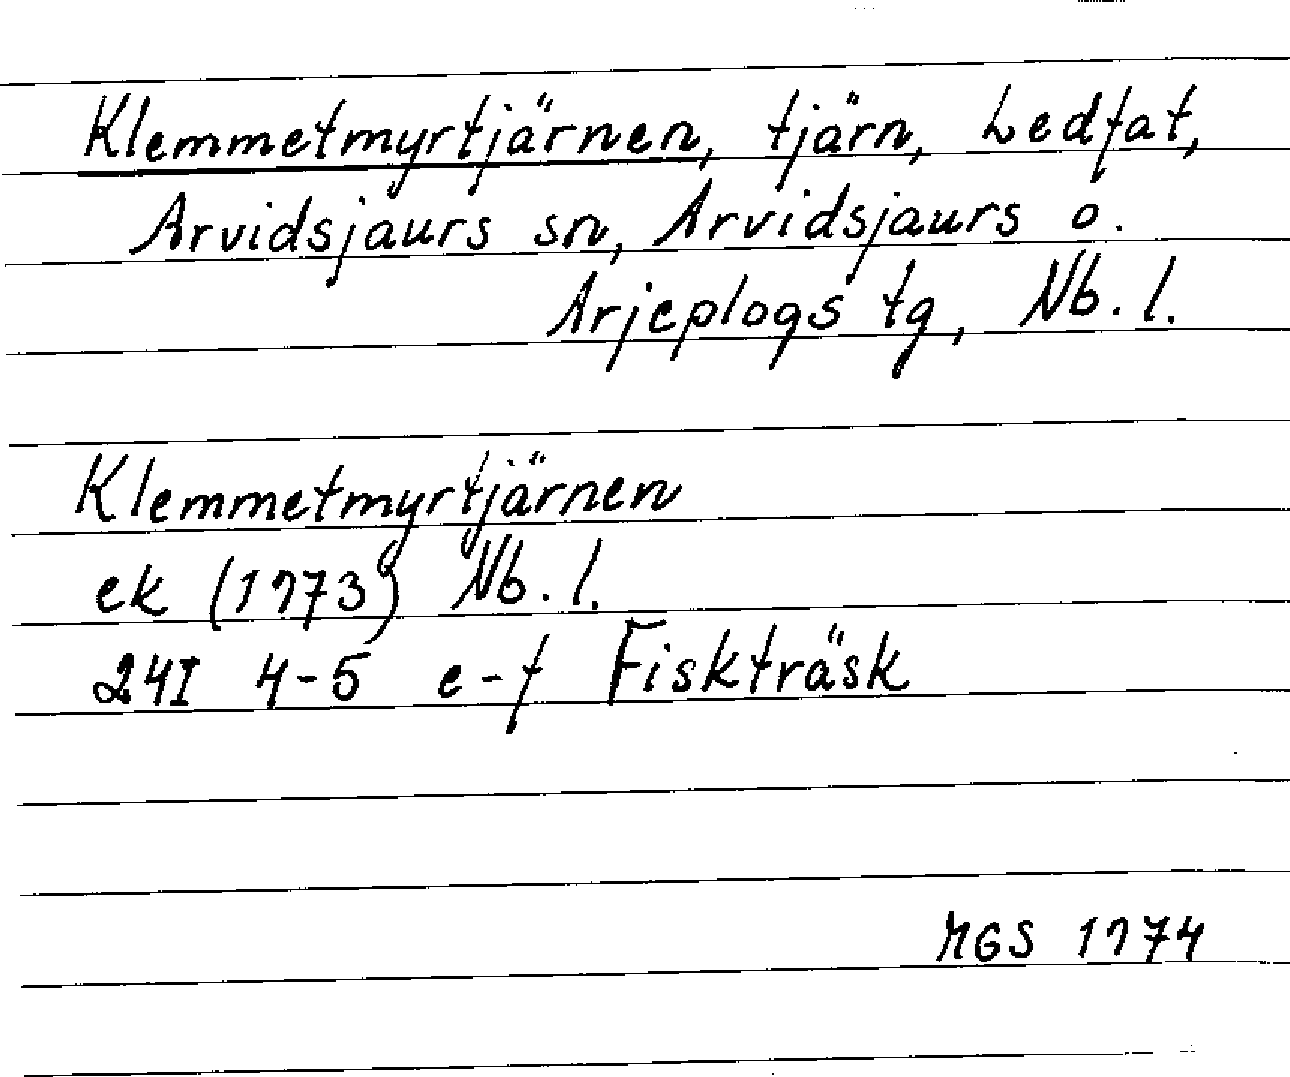 Klemmetmyrtjärnen, tjärn, Ledfat,
Arvidsjaurs sn, Arvidsjaurs o.
Arjeplogs tg, Nb. l.
Klemmetmyrtjärnen
ek (1973) Nb. l.
24I 4-5 e-f Fiskträsk
MGS 1974